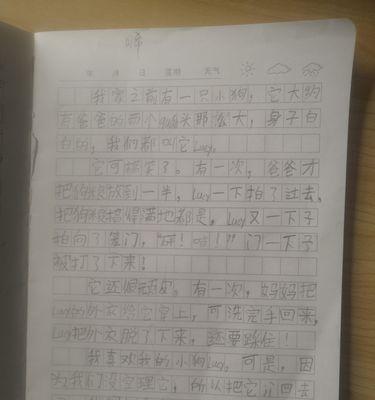 年 月 日 星期 天气
我家之前有一只小狗，它大约
有爸爸的两个拳头那么大，身子白
白的，我们都叫它Lucy。
它可搞笑了。有一次，爸爸才
把狗粮放到一半，Lucy一下拍了过去，
把狗粮搞得满地都是，Lucy又一下子
拍向了笼门，“砰！啪！”门一下子
被打了下来！
它还很顽皮。有一次，妈妈把
Lucy的外衣给它穿上，可洗完手回来，
Lucy把外衣脱了下来，还要踩住！
我喜欢我的小狗Lucy。可是，因
为我们没空理它，所以把它 回去